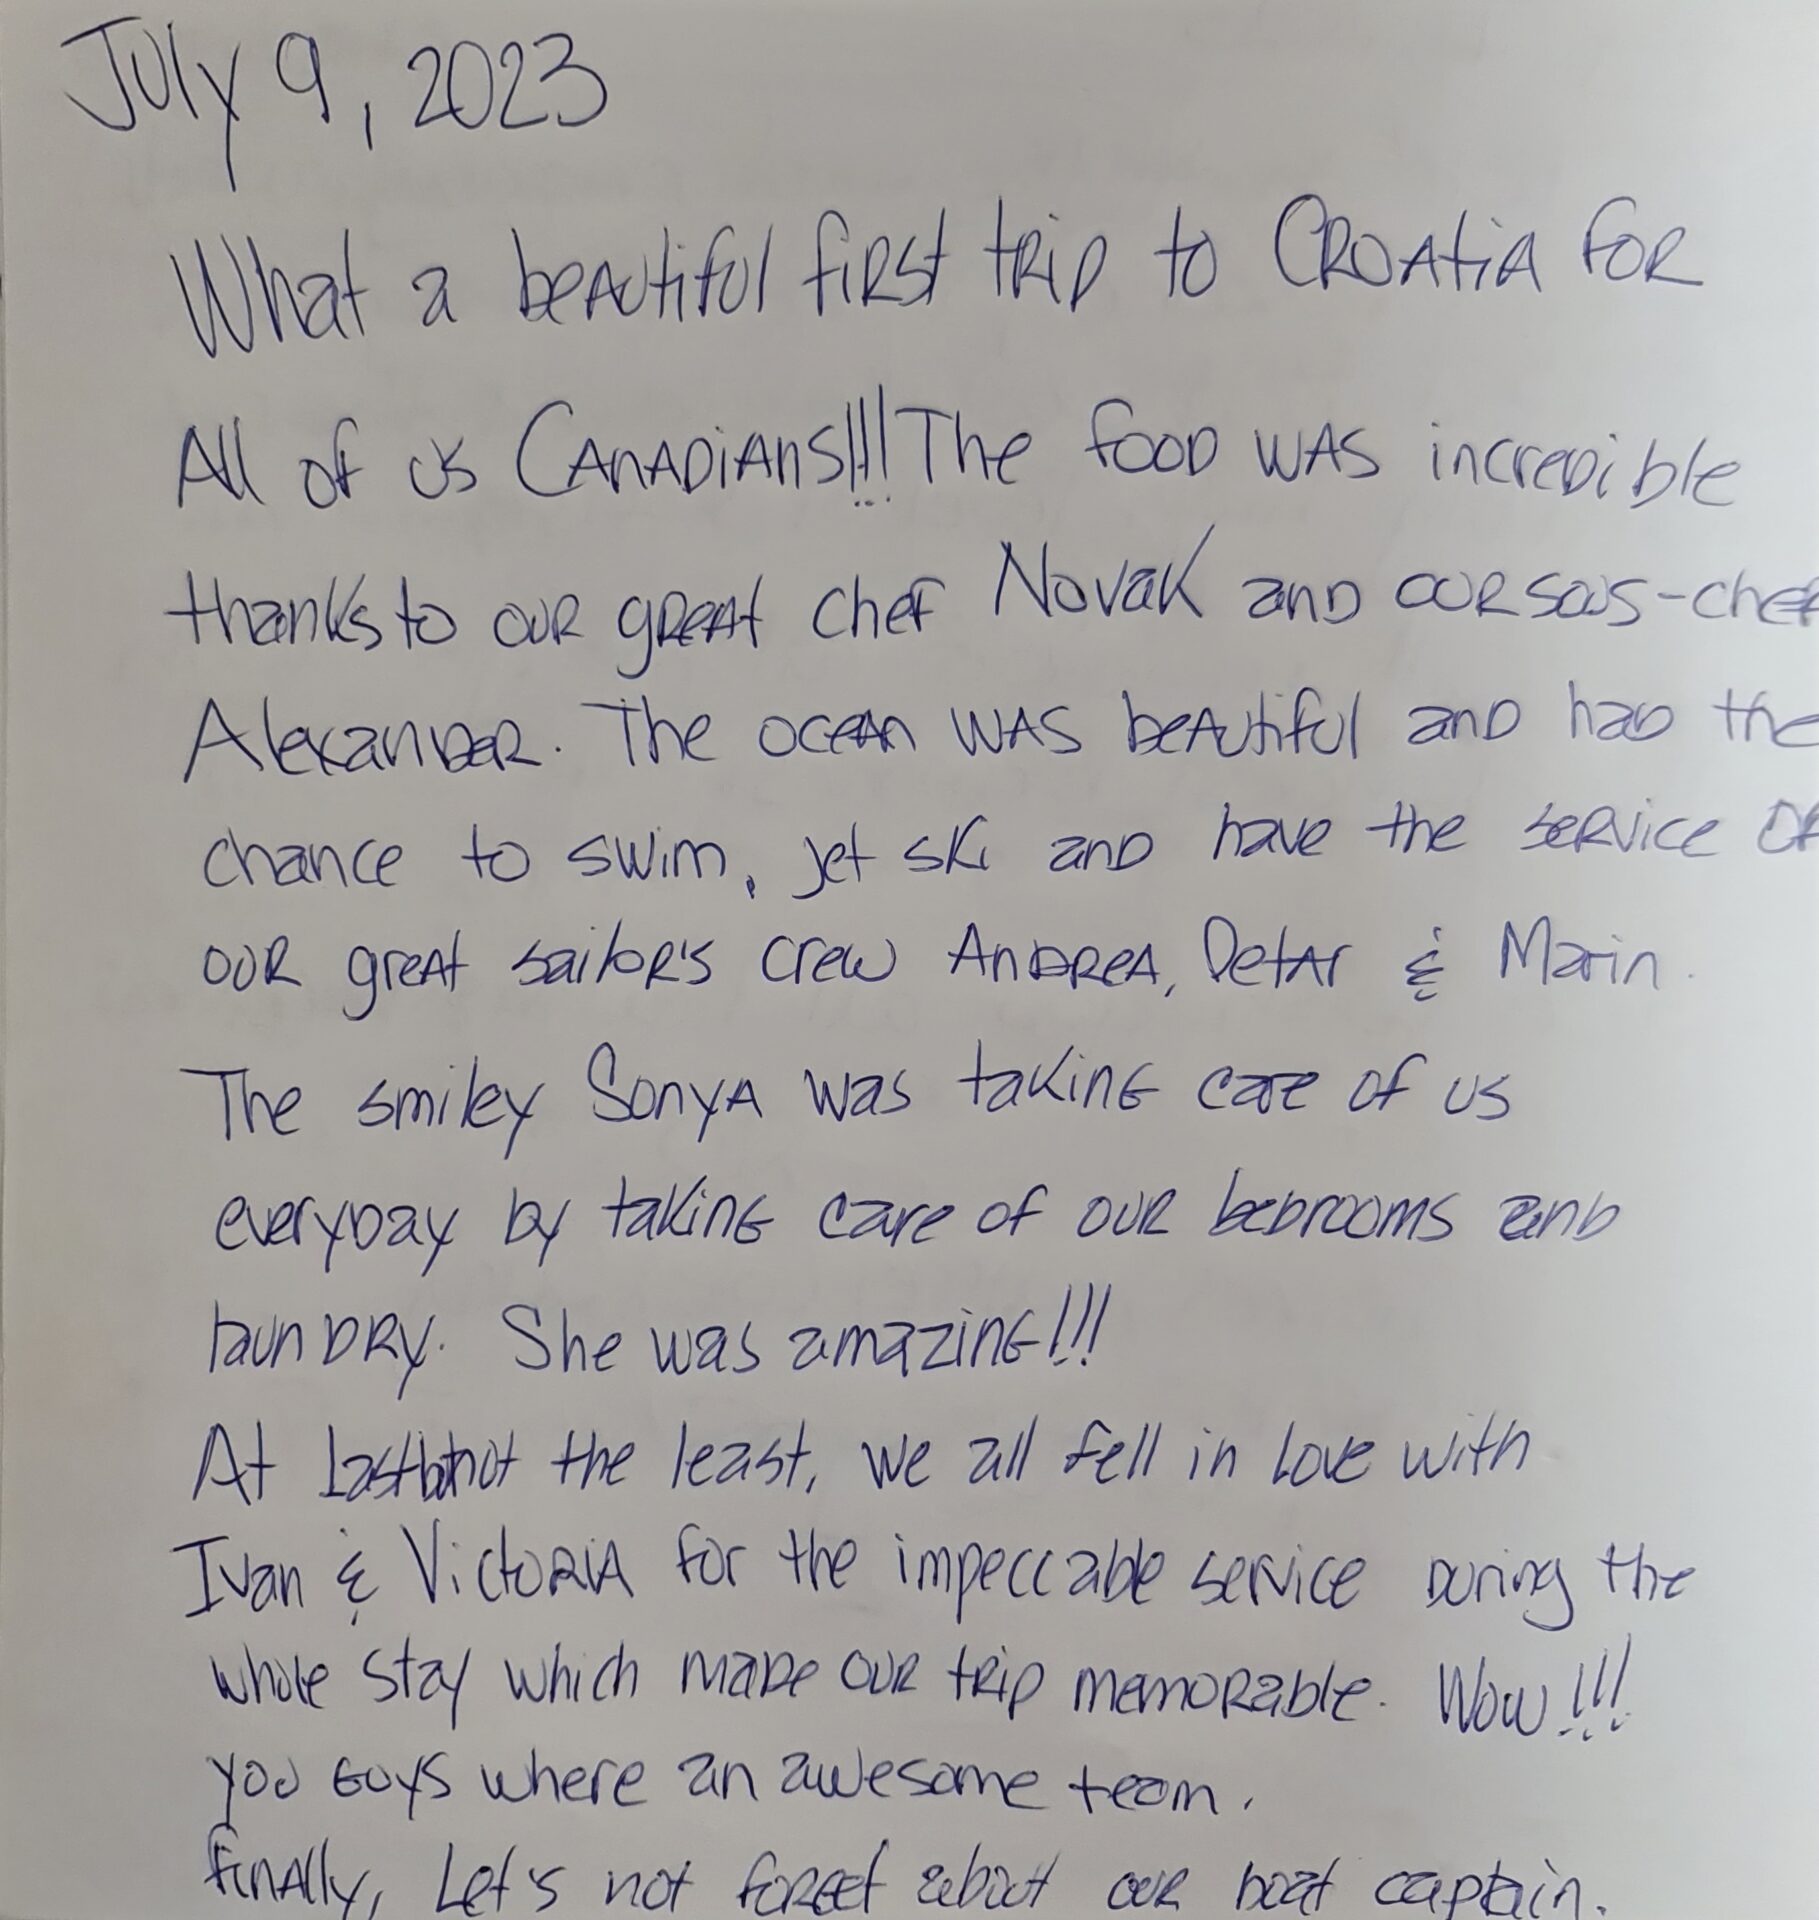 July 9, 2023
What a beautiful first trip to Croatia for
All of us Canadians!!! The food was incredible
thanks to our great chef Novak and our sous-chef
Alexander. The ocean was beautiful and had the
chance to swim, jet ski and have the service of
our great sailor's crew Andrea, Petar & Marin.
The smiley Sonya was taking care of us
everyday by taking care of our bedrooms and
laundry. She was amazing!!!
At last but not the least, we all fell in love with
Ivan & Victoria for the impeccable service during the
whole stay which made our trip memorable. Wow!!!
you guys where an awesome team.
finally, Let's not forget about our boat captain.